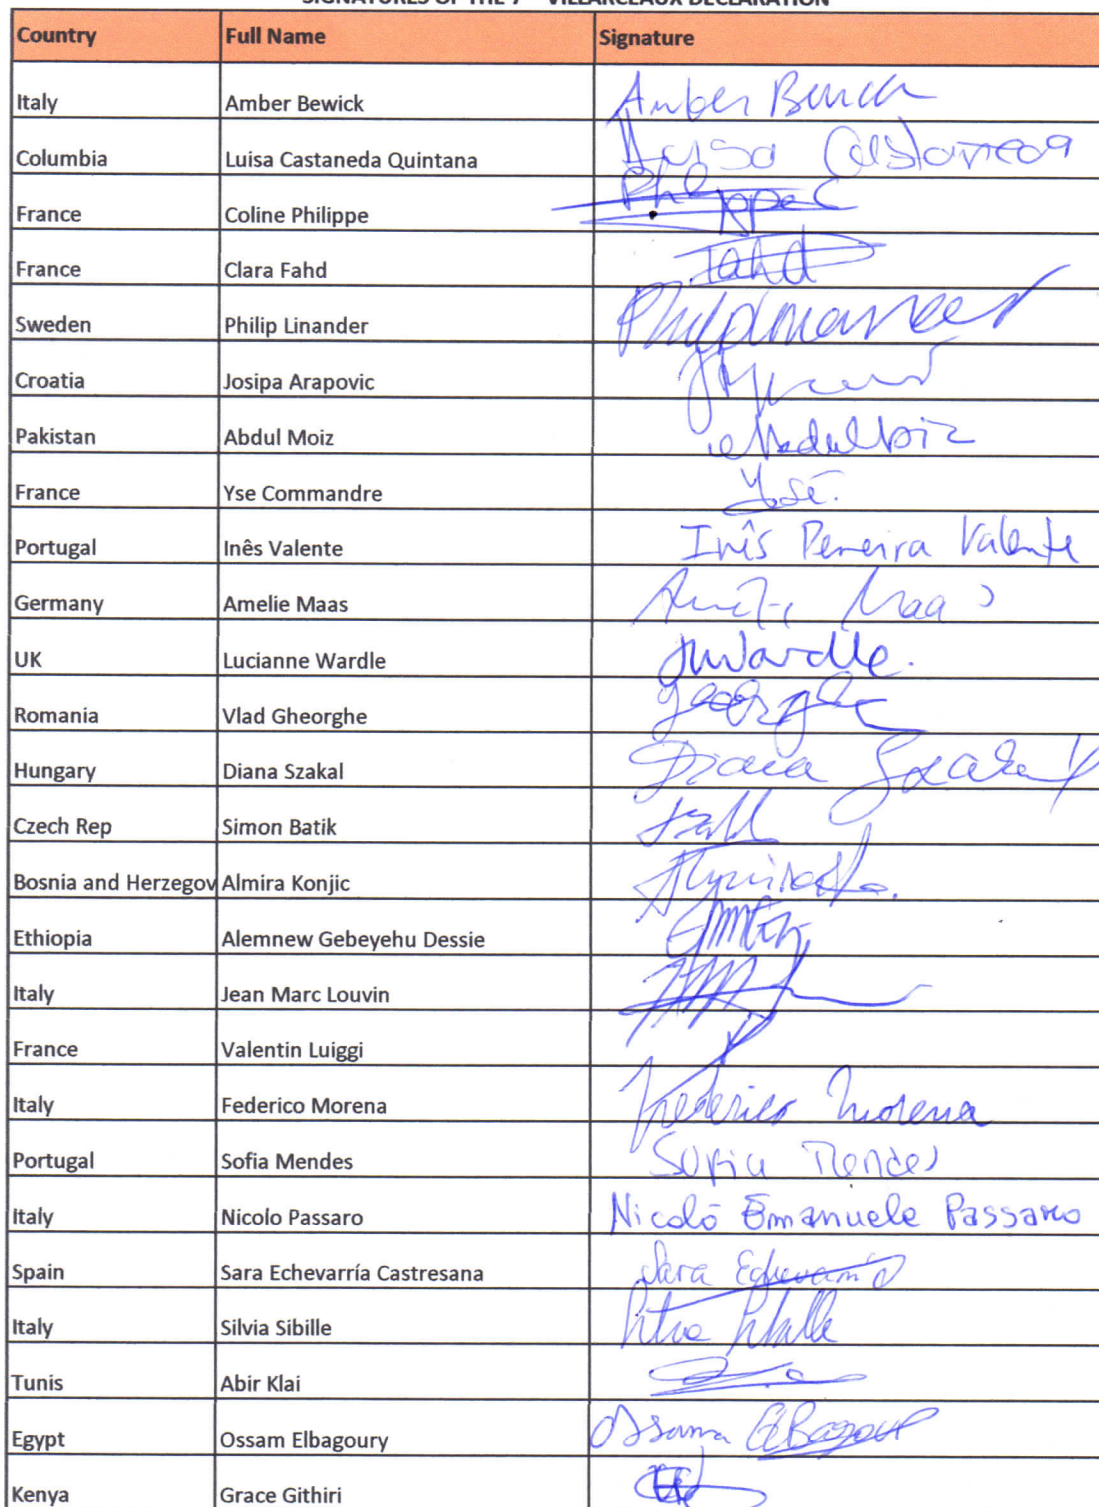 SIGNATURES OF THE 7 VILLARCEAUX DECLARATION
Country Full Name Signature
Italy Amber Bewick Amber Bewick
Columbia Luisa Castaneda Quintana Luisa Castaneda
France Coline Philippe Philippe C
France Clara Fahd Fahd
Sweden Philip Linander
Croatia Josipa Arapovic
Pakistan Abdul Moiz
France Yse Commandre
Portugal Inês Valente Inês Pereira Valente
Germany Amelie Maas Amelie Maas
UK Lucianne Wardle
Romania Vlad Gheorghe
Hungary Diana Szakal Diana Szakal
Czech Rep Simon Batik
Bosnia and Herzegov Almira Konjic
Ethiopia Alemnew Gebeyehu Dessie
Italy Jean Marc Louvin
France Valentin Luiggi
Italy Federico Morena Federico Morena
Portugal Sofia Mendes Sofia Mendes
Italy Nicolo Passaro Nicolò Emanuele Passaro
Spain Sara Echevarría Castresana Sara Echevarría
Italy Silvia Sibille Silvia Sibille
Tunis Abir Klai
Egypt Ossam Elbagoury Ossama ElBagoury
Kenya Grace Githiri